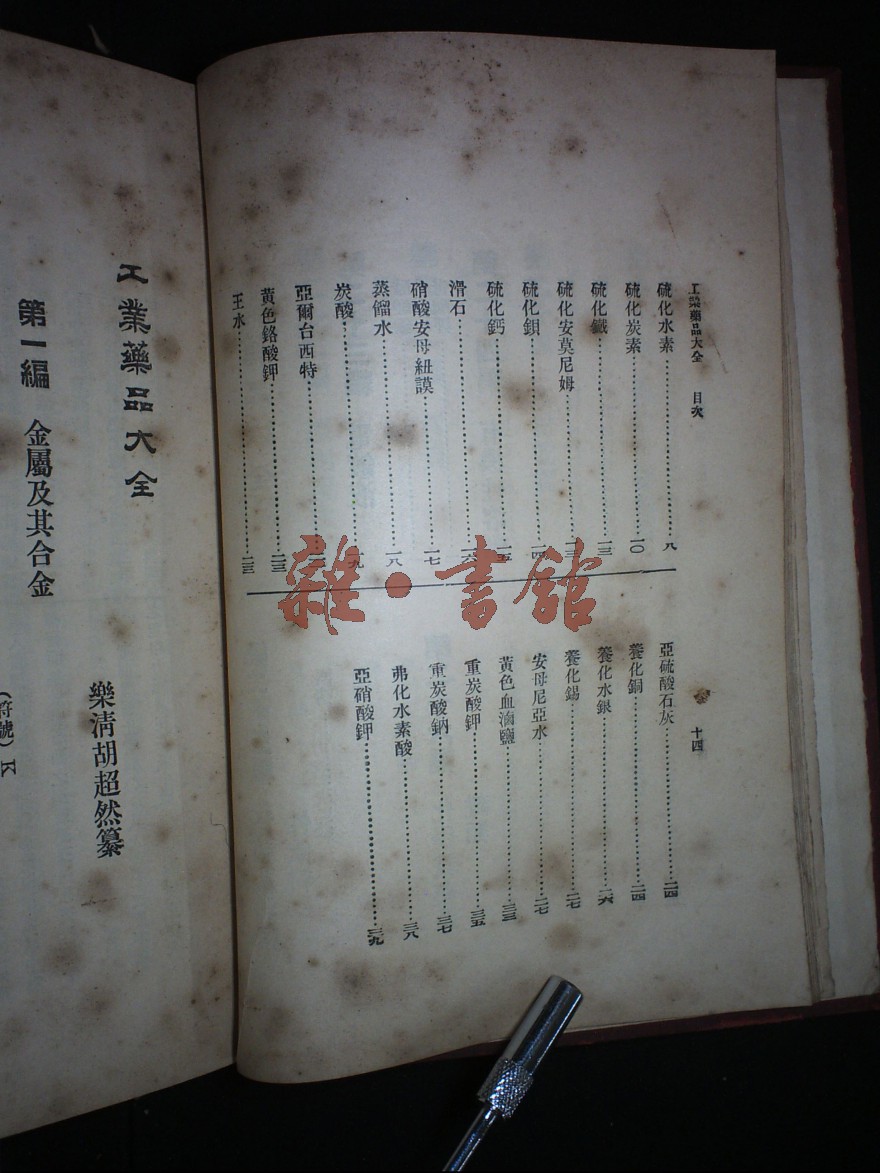 工業藥品大全 目次 十四
硫化水素 八
硫化炭素 一〇
硫化鐵 一三
硫化安莫尼姆 一三
硫化鋇 一四
硫化鈣 一五
滑石 一六
硝酸安母紐謨 一七
蒸餾水 一八
炭酸 一九
亞爾台西特
黃色鉻酸鉀
王水
亞硫酸石灰 二四
養化銅 二四
養化水銀 二六
養化錫 二七
安母尼亞水 二七
黃色血滷鹽 三三
重炭酸鉀 三五
重炭酸鈉 三七
弗化水素酸 三八
亞硝酸鉀 三九
工業藥品大全
樂清胡超然纂
第一編 金屬及其合金
(符號) K
雜·書館